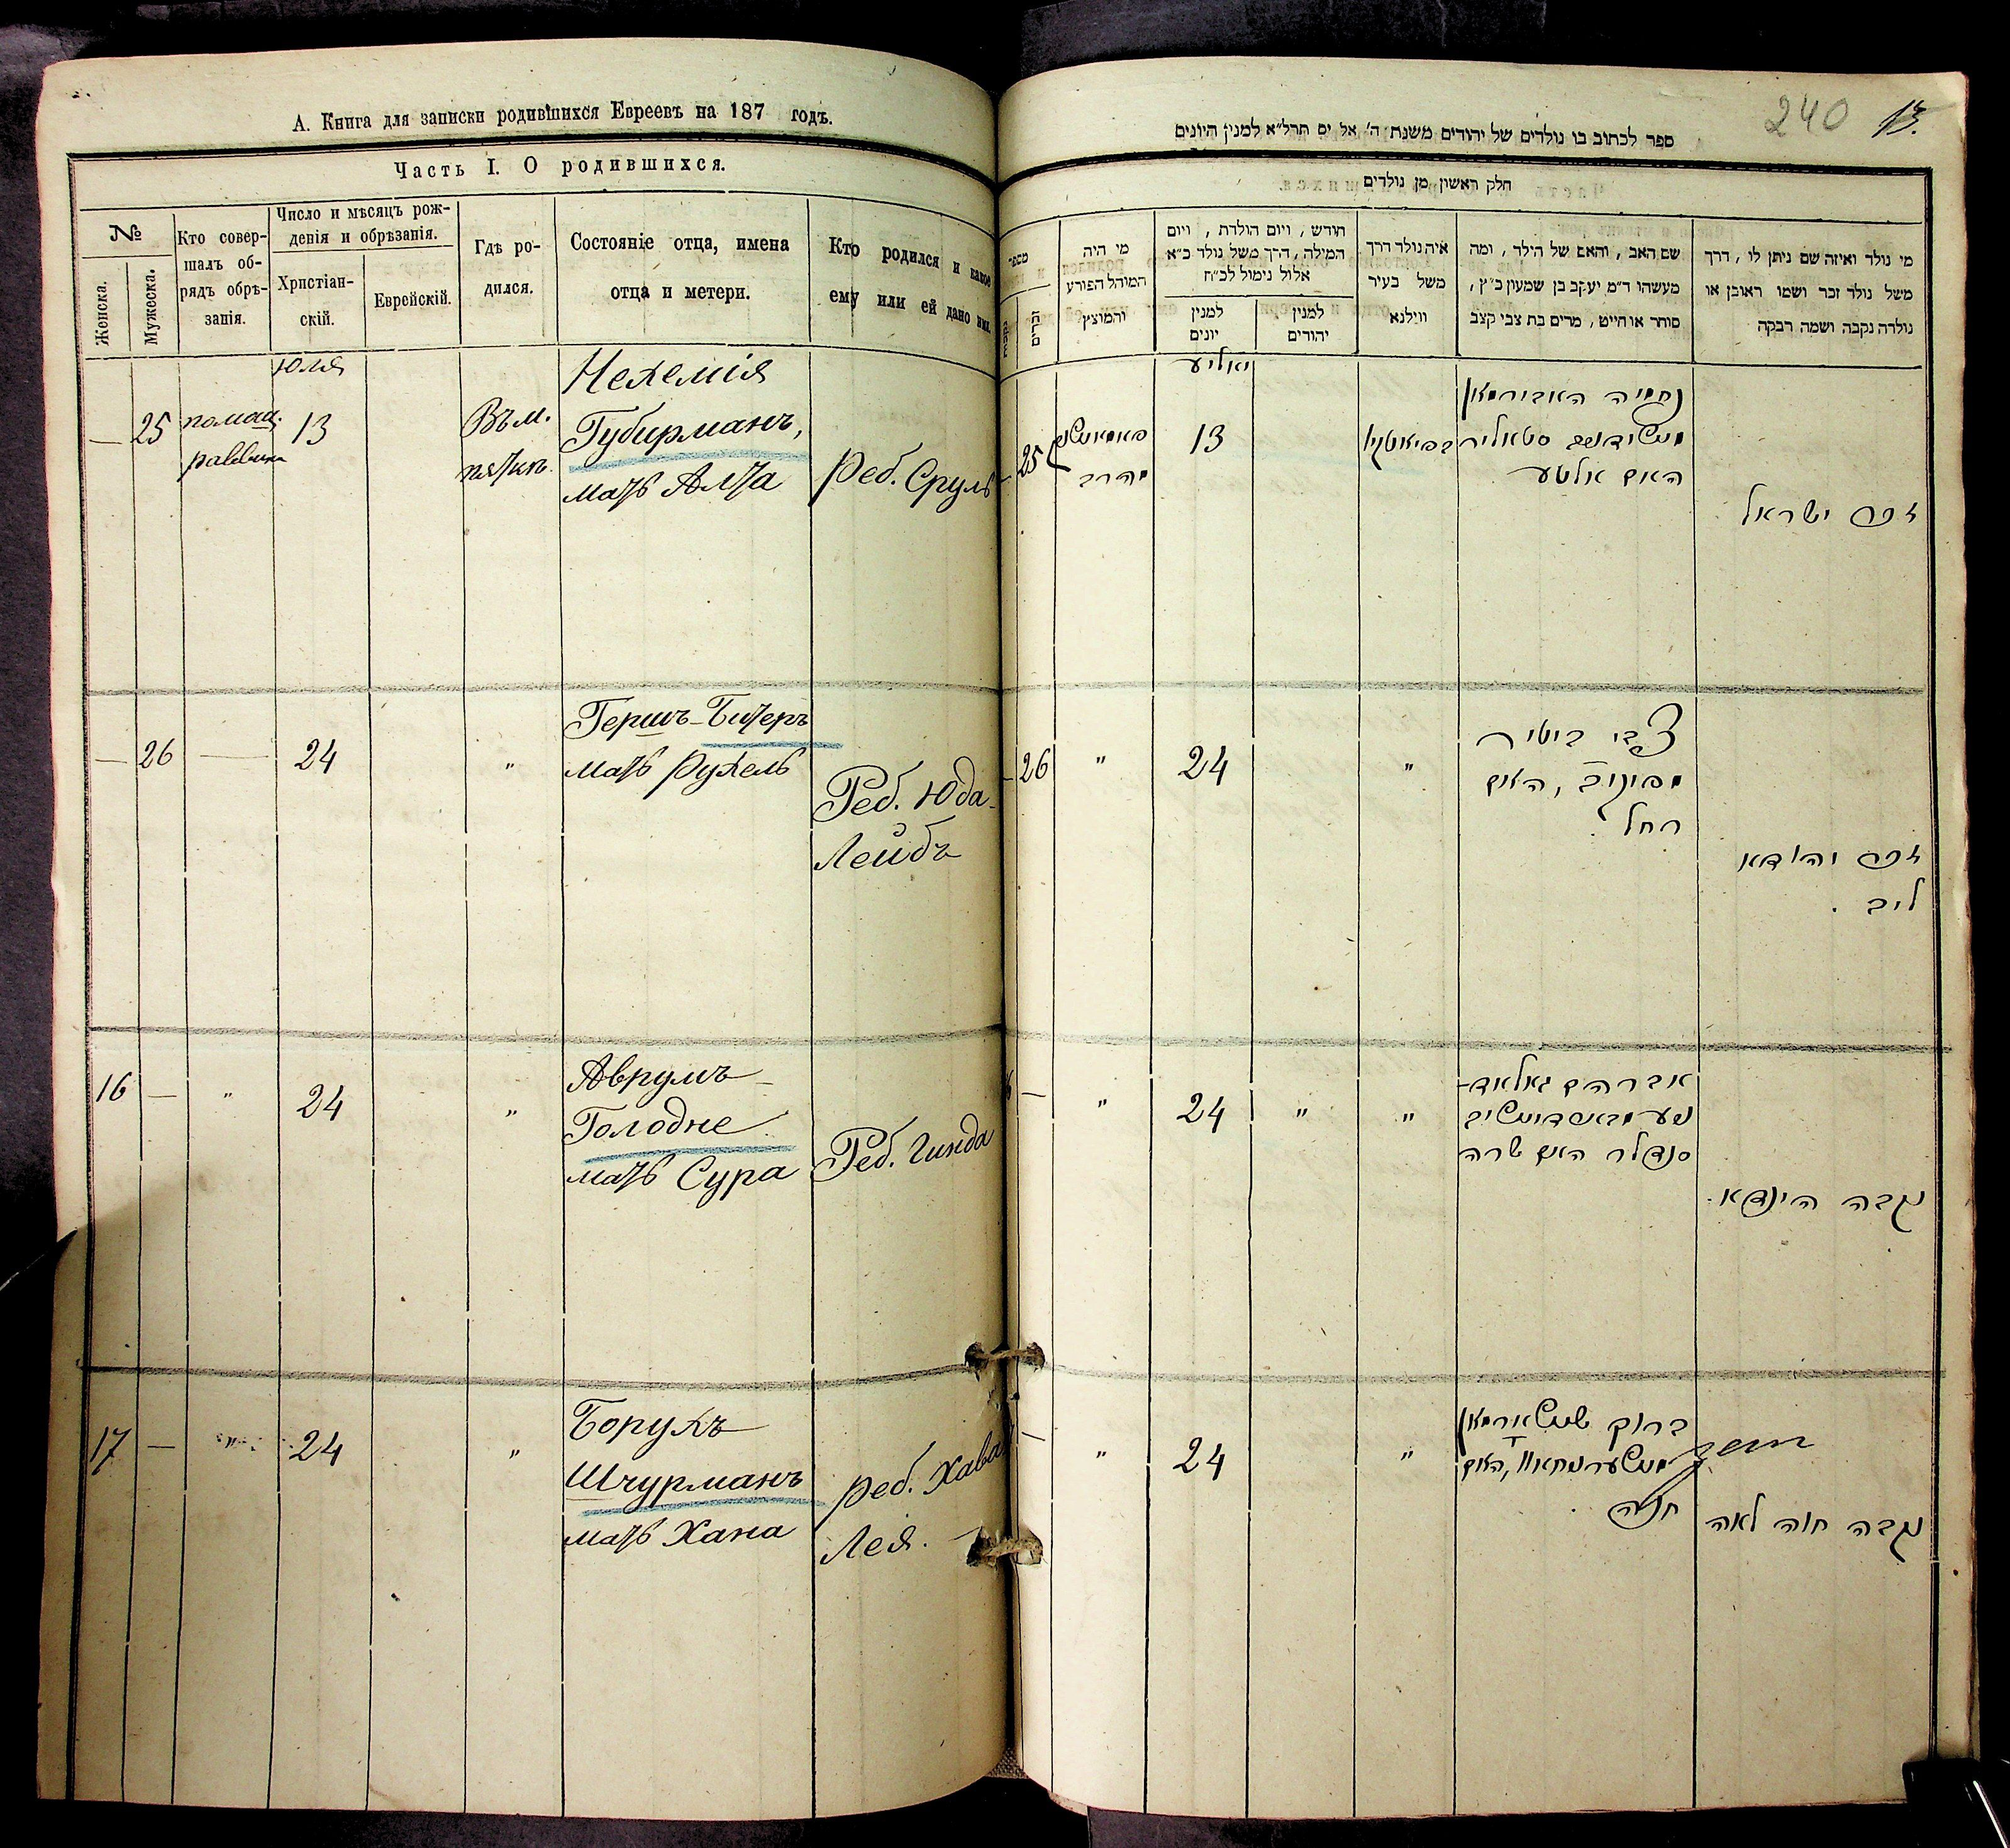 А. Книга для записки родившихся Евреевъ на 187 годъ.
Часть I. О родившихся.
№
Женска.
Мужеска.
Кто совер-
шалъ об-
рядъ обрѣ-
занія.
Число и мѣсяцъ рож-
денія и обрѣзанія.
Христіан-
скій.
Еврейскій.
Гдѣ ро-
дился.
Состояніе отца, имена
отца и метери.
Кто родился и какое
ему или ей дано имя.
Юля
— 25
помощ.
раввина
13
Въ м.
Нехемія
Губирманъ,
мать Алта
Реб. Сруль
— 26
—
24
"
Гершъ-Битеръ
мать Рухель
Реб. Юда-
Лейбъ
16 —
"
24
"
Аврумъ
Голодне
мать Сура
Реб. Гинда
17 —
"
24
"
Борухъ
Шчурманъ
мать Хана
реб. Хава
Лея.
240
13.
ספר לכתוב בו נולדים של יהודים משנת ה' אל ים תרל״א למנין היונים
חלק ראשון מן נולדים
מספר
נקבות
זכרים
מי היה
המוהל הפורע
והמוצץ
חודש, ויום הולדת, ויום
המילה, דרך משל נולד כ״א
אלול נימול לכ״ח
למנין
יונים
למנין
יהודים
איה נולד דרך
משל בעיר
ווילנא
שם האב, והאם של הילד, ומה
מעשהו ד״מ יעקב בן שמעון כ״ץ,
סוחר או חייט, מרים בת צבי קצב
מי נולד ואיזה שם ניתן לו, דרך
משל נולד זכר ושמו ראובן או
נולדה נקבה ושמה רבקה
יאליע
25
הרב
13
נחמיה האבירמאן
האם אלטע
זכר ישראל
26
"
24
"
צבי ביטיר
האם
רחל
זכר יהודא
ליב.
—
"
24
"
"
אברהם גאלאד-
סנדלר האם שרה
נקבה הינדא.
—
"
24
"
ברוך
האם
חנה
נקבה חוה לאה